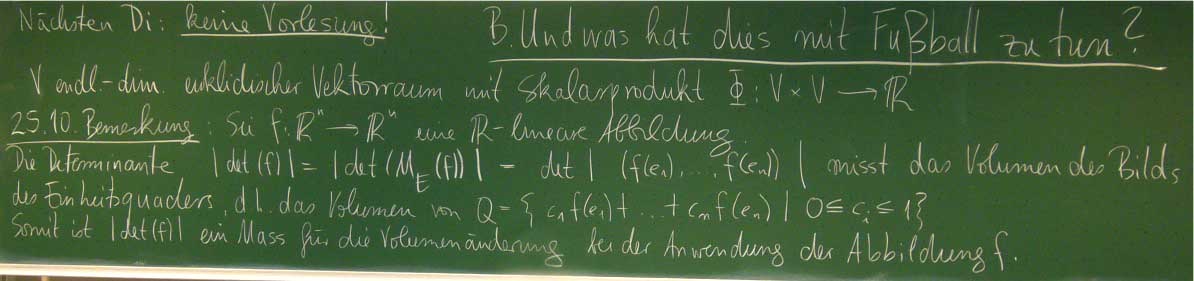 Nächsten Di: keine Vorlesung!
B. Und was hat dies mit Fußball zu tun?
V endl.-dim. euklidischer Vektorraum mit Skalarprodukt Φ: V × V → ℝ
25.10. Bemerkung: Sei f: ℝⁿ → ℝⁿ eine ℝ-lineare Abbildung.
Die Determinante |det(f)| = |det(M_E(f))| = det | (f(e₁), ..., f(eₙ)) | misst das Volumen des Bilds
des Einheitsquaders, d.h. das Volumen von Q = { c₁ f(e₁) + ... + cₙ f(eₙ) | 0 ≤ cᵢ ≤ 1 }
Somit ist |det(f)| ein Mass für die Volumenänderung bei der Anwendung der Abbildung f.